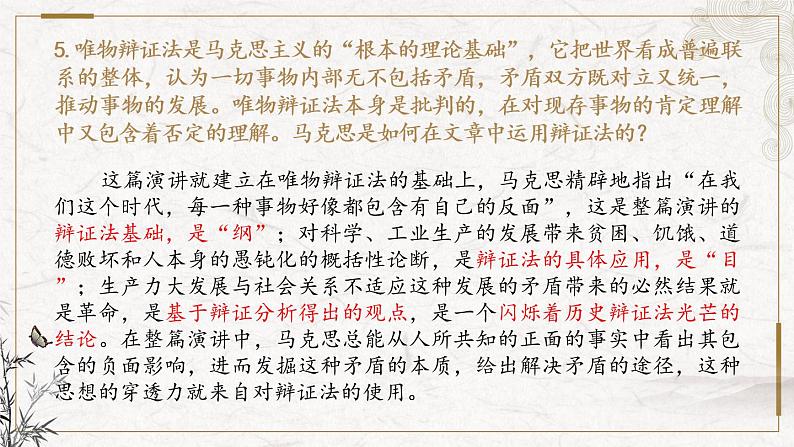 5. 唯物辩证法是马克思主义的“根本的理论基础”，它把世界看成普遍联
系的整体，认为一切事物内部无不包括矛盾，矛盾双方既对立又统一，
推动事物的发展。唯物辩证法本身是批判的，在对现存事物的肯定理解
中又包含着否定的理解。马克思是如何在文章中运用辩证法的？
这篇演讲就建立在唯物辩证法的基础上，马克思精辟地指出“在我
们这个时代，每一种事物好像都包含有自己的反面”，这是整篇演讲的
辩证法基础，是“纲”；对科学、工业生产的发展带来贫困、饥饿、道
德败坏和人本身的愚钝化的概括性论断，是辩证法的具体应用，是“目
”；生产力大发展与社会关系不适应这种发展的矛盾带来的必然结果就
是革命，是基于辩证分析得出的观点，是一个闪烁着历史辩证法光芒的
结论。在整篇演讲中，马克思总能从人所共知的正面的事实中看出其包
含的负面影响，进而发掘这种矛盾的本质，给出解决矛盾的途径，这种
思想的穿透力就来自对辩证法的使用。